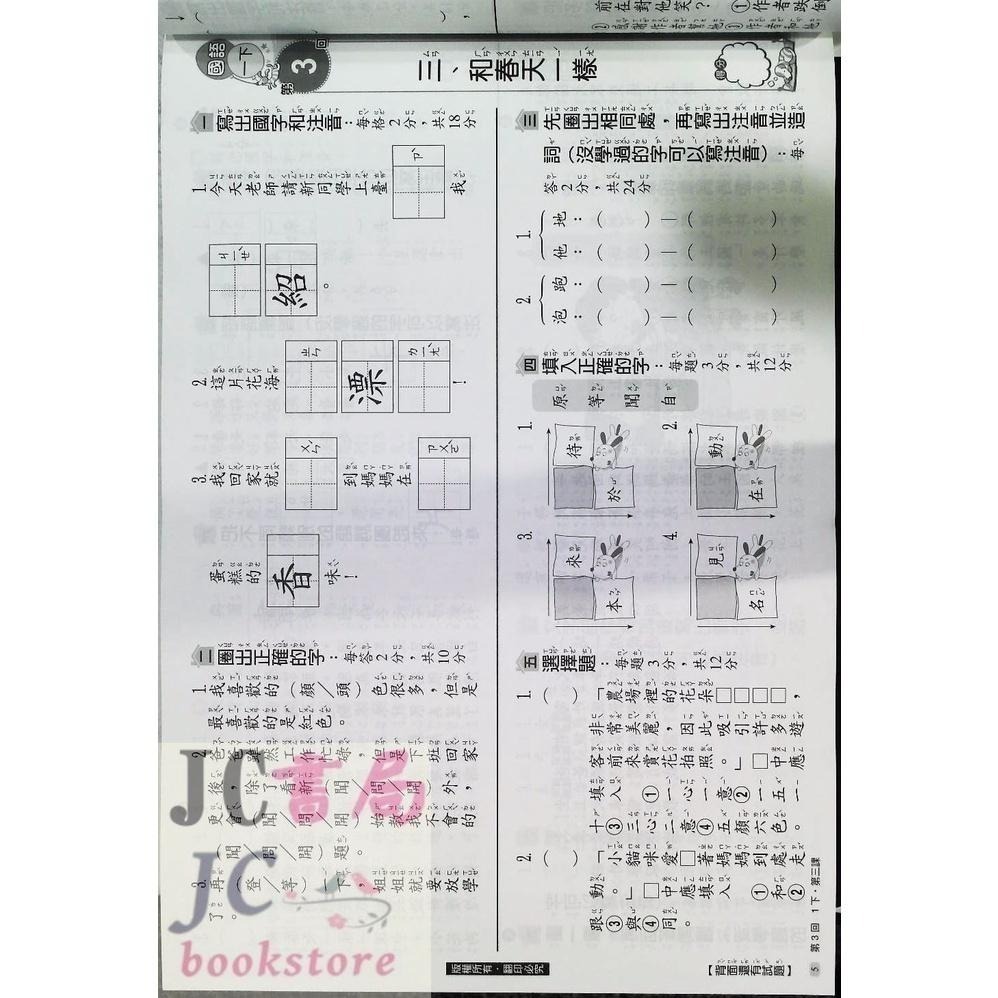 前在對他笑？ ①作者跌倒
國語 一下
第3回
三、和春天一樣
得分
一 寫出國字和注音：每格2分，共18分
1. 今天老師請新同學上臺 ㄗˋ 我
ㄐㄧㄝˋ 紹。
2. 這片花海 ㄓㄣ 漂 ㄌㄧㄤˋ ！
3. 我回家就 ㄨㄣˊ 到媽媽在 ㄗㄨㄛˋ
蛋糕的 香 味！
二 圈出正確的字：每答2分，共10分
1. 我喜歡的（顏／頭）色很多，但是
最喜歡的是紅色。
2. 爸爸雖然工作忙碌，但是下班回家
後，除了看新（聞／問／開）外，
更會（聞／問／開）始教我不會的
（聞／問／開）題。
3. 再（登／等）一下，姐姐就要放學
了。
三 先圈出相同處，再寫出注音並造
詞（沒學過的字可以寫注音）：每
答2分，共24分
1. 地：（ ）—（ ）
他：（ ）—（ ）
2. 跑：（ ）—（ ）
泡：（ ）—（ ）
四 填入正確的字：每題3分，共12分
原 等 聞 自
1. 待 於
2. 動 在
3. 來 本
4. 見 名
五 選擇題：每題3分，共12分
1.（ ）「農場裡的花朵□□□□，
非常美麗，因此吸引許多遊
客前來賞花拍照。」□中應
填入 ①一心一意②一五一
十③三心二意④五顏六色。
2.（ ）「小貓咪愛□著媽媽到處走
動。」□中應填入 ①和②
跟③與④同。
版權所有‧翻印必究
【背面還有試題】
5 第3回 1下‧第三課
JC書局
JC
bookstore